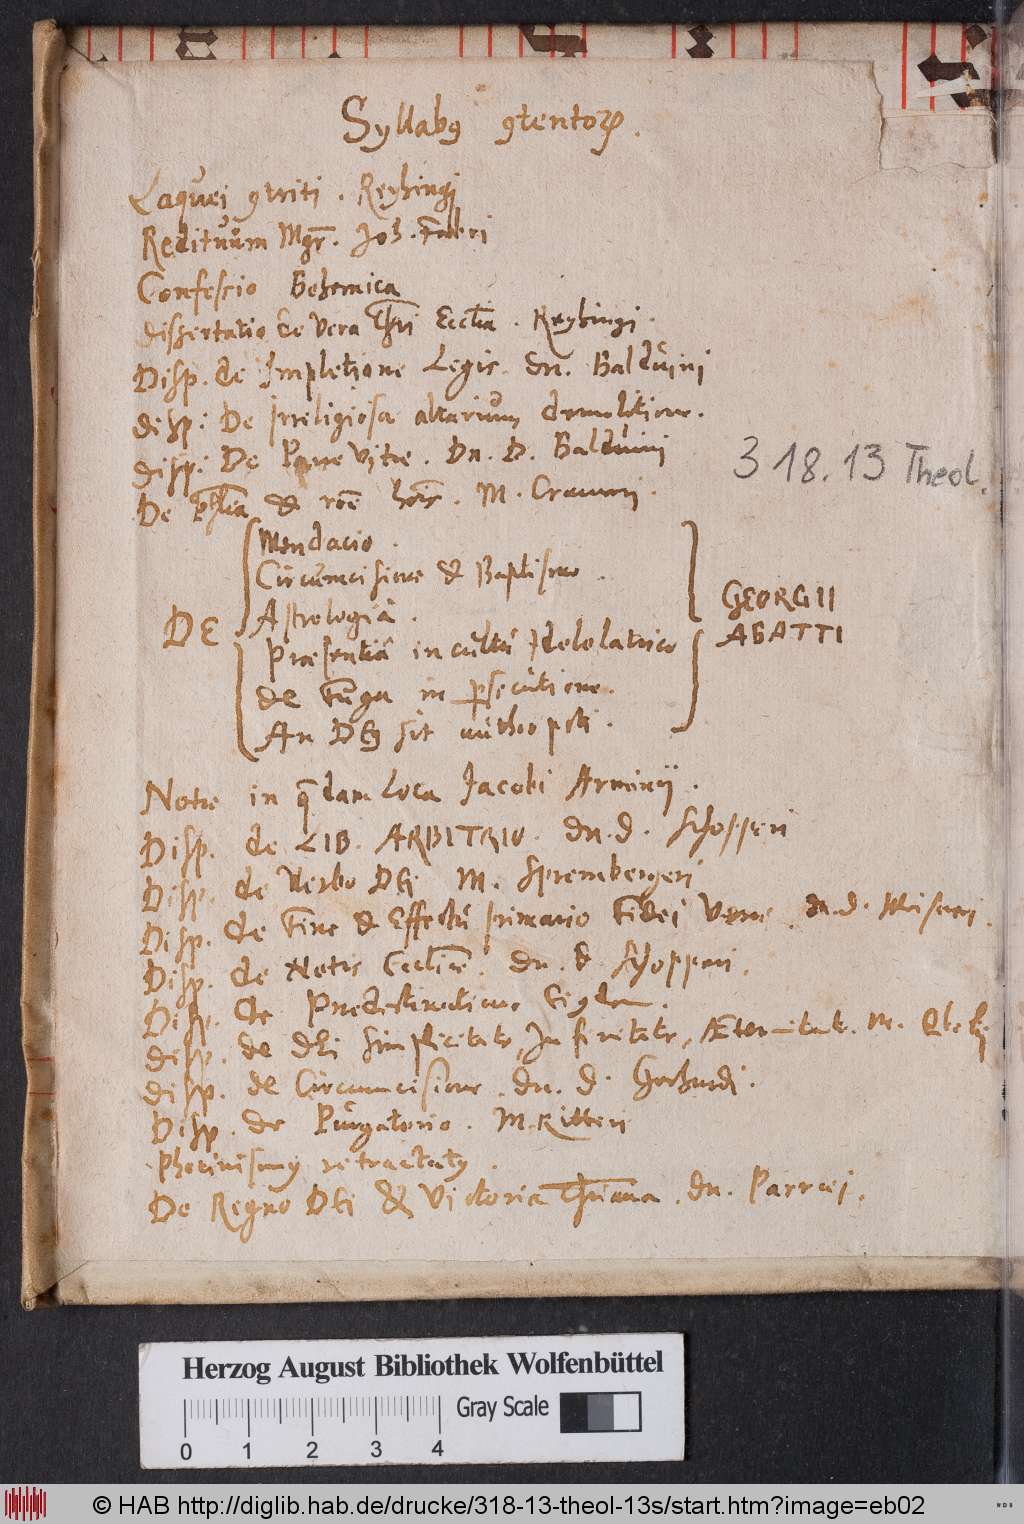 Syllabꝯ ꝯtentoꝝ.
Laquei ꝯtriti. Reyhingj
Redituum Mgr̄. Joh. Fabri
Confessio Bohemica
dissertatio de vera Chr̄i Eccl̄ia. Reyhingi.
Disp. de Impletione Legis. dn. Balduinj
disp: De Irreligiosa altarium demolitione.
disp: De Pane Vitæ. Dn. D. Balduinj
De & M. Crameri.
Mendacio.
Circumcisione & Baptismo.
Astrologiâ.
DE
Præsentiâ in cultu Idololatrico
de Fuga in ꝑsecutione.
An DEꝯ sit
GEORGII
ABATTI
318.13 Theol.
Notæ in quædam Loca Jacobi Arminij.
Disp. de LIB. ARBITRIO. dn. d. Schopperi
Disp. de Verbo DEi M. Sprembergeri
Disp. de Fine & Effectu primario Fidei Veræ. d. d. Meisneri.
Disp. de Notis Eccl̄iæ. dn. d. Schopperi.
Disp. de Prædestinatione Eiꝯdem.
disp. de dEi Simplicitate, Infinitate, Æternitate. M.
disp. de Circumcisione. dn. d. Gerhardi.
Disp. de Purgatorio. M. Ritteri
Photinismꝯ retractatꝯ.
De Regno DEi & Victoria Chr̄iana. dn. Parræi.
Herzog August Bibliothek Wolfenbüttel
Gray Scale
0 1 2 3 4
© HAB http://diglib.hab.de/drucke/318-13-theol-13s/start.htm?image=eb02